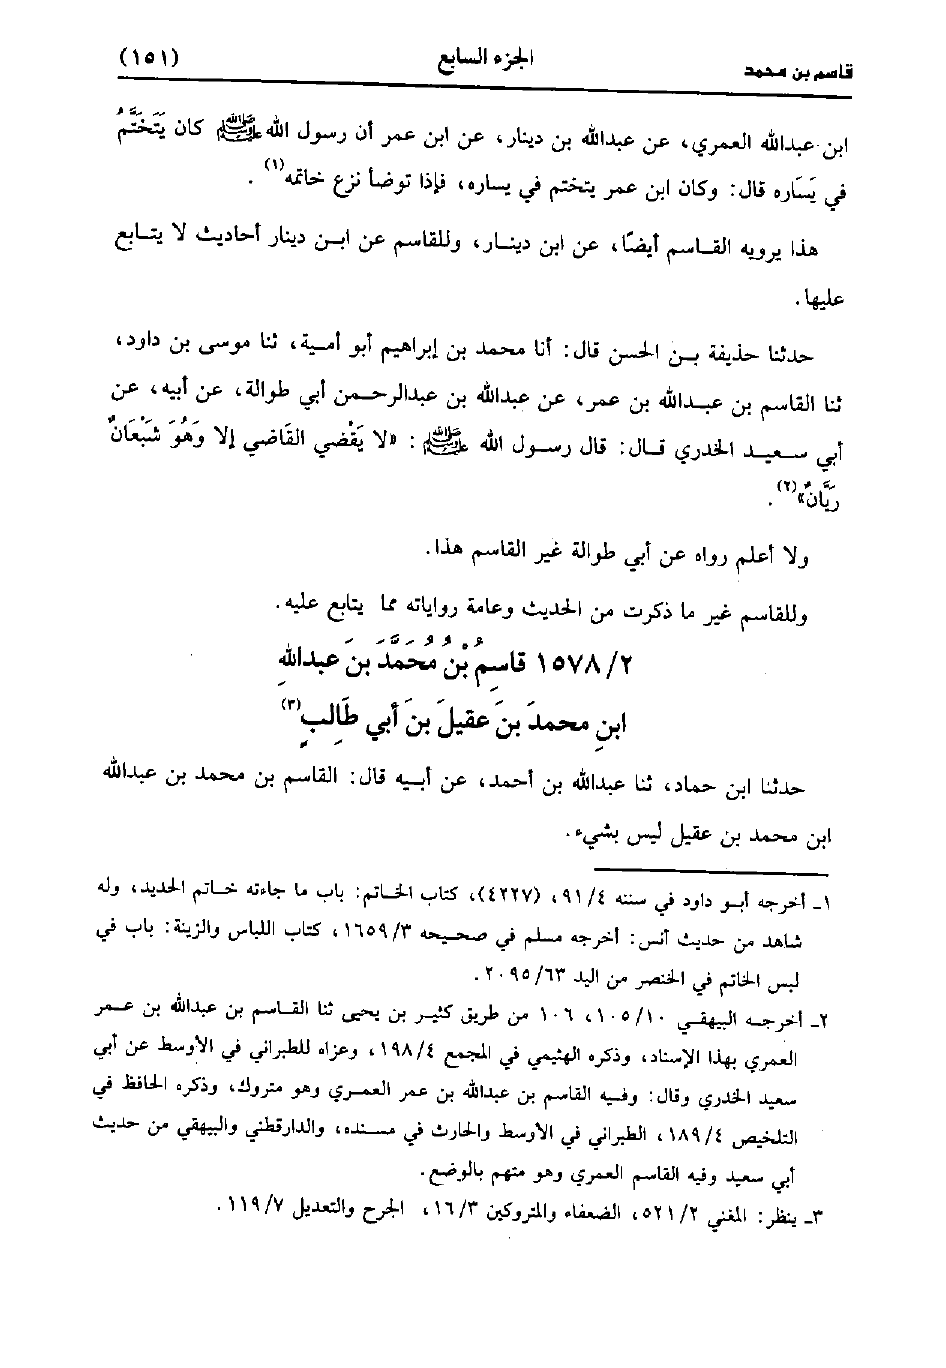 قاسم بن محمد الجزء السابع (١٥١)
ابن عبدالله العمري، عن عبدالله بن دينار، عن ابن عمر أن رسول الله ﷺ كان يَتَخَتَّمُ
في يَسَاره قال: وكان ابن عمر يتختم في يساره، فإذا توضأ نزع خاتمه(١) .
هذا يرويه القاسم أيضًا، عن ابن دينار، وللقاسم عن ابن دينار أحاديث لا يتابع
عليها.
حدثنا حذيفة بن الحسن قال: أنا محمد بن إبراهيم أبو أمية، ثنا موسى بن داود،
ثنا القاسم بن عبدالله بن عمر، عن عبدالله بن عبدالرحمن أبي طوالة، عن أبيه، عن
أبي سعيد الخدري قال: قال رسول الله ﷺ : «لا يَقْضي القَاضي إلا وَهُوَ شَبْعَانٌ
رَيَّانٌ»(٢).
ولا أعلم رواه عن أبي طوالة غير القاسم هذا.
وللقاسم غير ما ذكرت من الحديث وعامة رواياته مما يتابع عليه.
١٥٧٨/٢ قاسمُ بْنُ مُحَمَّدَ بنَ عبدالله
ابنِ محمدَ بنَ عقيلَ بنَ أبي طَالِبٍ(٣)
حدثنا ابن حماد، ثنا عبدالله بن أحمد، عن أبيه قال: القاسم بن محمد بن عبدالله
ابن محمد بن عقيل ليس بشيء.
١ـ أخرجه أبو داود في سننه ٩١/٤، (٤٢٢٧)، كتاب الخاتم: باب ما جاءته خاتم الحديد، وله
شاهد من حديث أنس: أخرجه مسلم في صحيحه ١٦٥٩/٣، كتاب اللباس والزينة: باب في
لبس الخاتم في الخنصر من اليد ٢٠٩٥/٦٣.
٢ـ أخرجه البيهقي ١٠٥/١٠، ١٠٦ من طريق كثير بن يحيى ثنا القاسم بن عبدالله بن عمر
العمري بهذا الإسناد، وذكره الهثيمي في المجمع ١٩٨/٤، وعزاه للطبراني في الأوسط عن أبي
سعيد الخدري وقال: وفيه القاسم بن عبدالله بن عمر العمري وهو متروك، وذكره الحافظ في
التلخيص ١٨٩/٤، الطبراني في الأوسط والحارث في مسنده، والدارقطني والبيهقي من حديث
أبي سعيد وفيه القاسم العمري وهو متهم بالوضع.
٣ـ ينظر: المغني ٥٢١/٢، الضعفاء والمتروكين ١٦/٣، الجرح والتعديل ١١٩/٧.